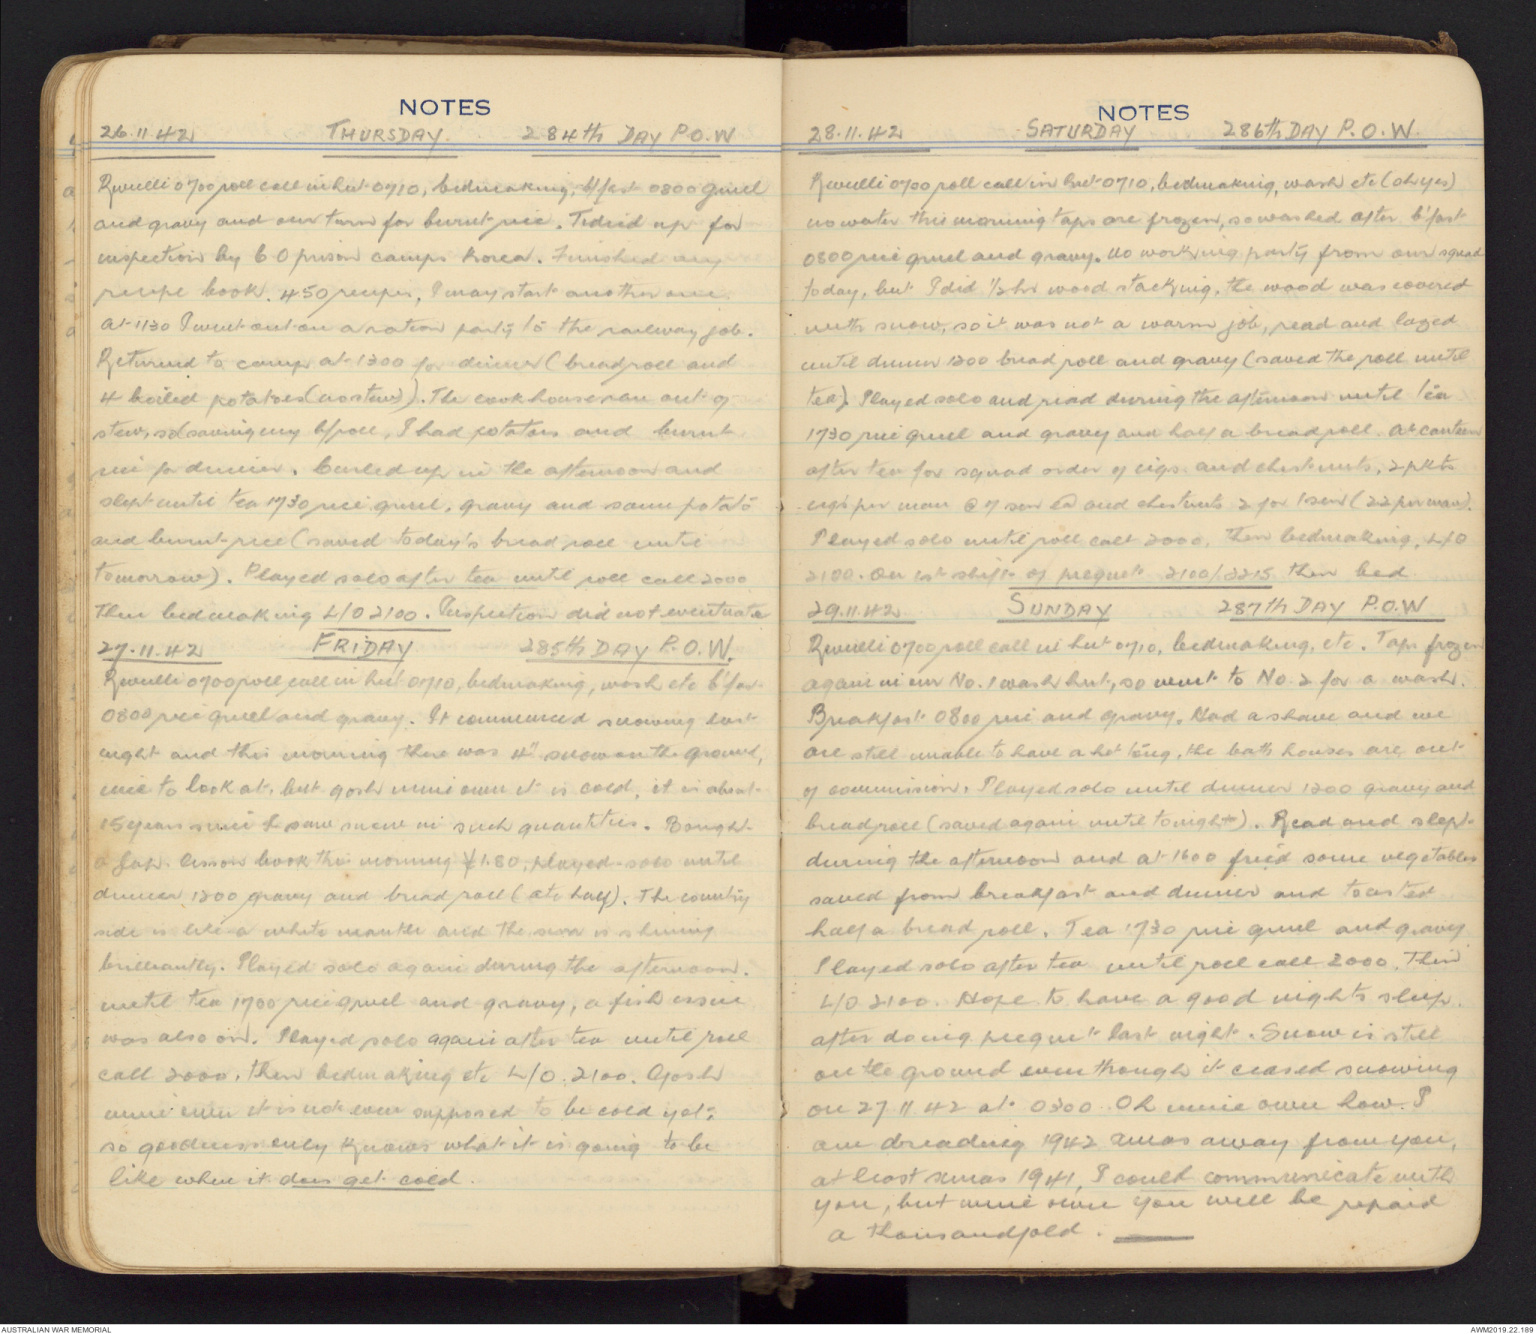 NOTES
26.11.42 THURSDAY 284th DAY P.O.W
Reveille 0700 roll call in hut 0710, bedmaking, b/fast 0800 gruel
and gravy and our turn for burnt rice. Tidied up for
inspection by C O prison camps Korea. Finished my
recipe book. 450 recipes, I may start another one.
At 1130 I went out on a ration party to the railway job.
Returned to camp at 1300 for dinner (bread roll and
4 boiled potatoes (no stew)). The cookhouse ran out of
stew, so saving my b/roll, I had potatoes and burnt
rice for dinner. Curled up in the afternoon and
slept until tea 1730 rice gruel, gravy and some potato
and burnt rice (saved today's bread roll until
tomorrow). Played solo after tea until roll call 2000
Then bedmaking L/O 2100. Inspection did not eventuate
27.11.42 FRIDAY 285th DAY P.O.W.
Reveille 0700 roll call in hut 0710, bedmaking, wash etc b'fast
0800 rice gruel and gravy. It commenced snowing last
night and this morning there was 4" snow on the ground,
nice to look at, but gosh mine own it is cold, it is about
15 years since I saw snow in such quantities. Bought
a Jap. lesson book this morning ¥1.80, played solo until
dinner 1300 gravy and bread roll (ate half). The country
side is like a white mantle and the sun is shining
brilliantly. Played solo again during the afternoon.
until tea 1700 rice gruel and gravy, a fish issue
was also on. Played solo again after tea until roll
call 2000, then bedmaking etc L/O. 2100. Gosh
mine own it is not even supposed to be cold yet,
so goodness only knows what it is going to be
like when it does get cold.
NOTES
28.11.42 SATURDAY 286th DAY P.O.W.
Reveille 0700 roll call in hut 0710, bedmaking, wash etc (oh yes)
no water this morning taps are frozen, so washed after b'fast
0800 rice gruel and gravy. No working party from our squad
today, but I did 1/2 hr wood stacking, the wood was covered
with snow, so it was not a warm job, read and lazed
until dinner 1300 bread roll and gravy (saved the roll until
tea). Played solo and read during the afternoon until tea
1730 rice gruel and gravy and half a bread roll. At canteen
after tea for squad order of cigs and chestnuts, 2 pkts
cigs per man @ 7 sen ea and chestnuts 2 for 1 sen (22 per man).
Played solo until roll call 2000, then bedmaking, L/O
2100. On 1st shift of picquet 2100/2215 then bed
29.11.42 SUNDAY 287th DAY P.O.W
Reveille 0700 roll call in hut 0710, bedmaking, etc. Taps frozen
again in our No. 1 wash hut, so went to No. 2 for a wash.
Breakfast 0800 rice and gravy. Had a shave and we
are still unable to have a hot tong, the bath houses are out
of commission. Played solo until dinner 1300 gravy and
bread roll (saved again until tonight). Read and slept
during the afternoon and at 1600 fried some vegetables
saved from breakfast and dinner and toasted
half a bread roll. Tea 1730 rice gruel and gravy
Played solo after tea until roll call 2000. Then
L/O 2100. Hope to have a good nights sleep.
after doing picquet last night. Snow is still
on the ground even though it ceased snowing
on 27.11.42 at 0300. Oh mine own how I
am dreading 1942 xmas away from you,
at least xmas 1941, I could communicate with
you, but mine own you will be repaid
a thousandfold.
AUSTRALIAN WAR MEMORIAL
AWM2019.22.189